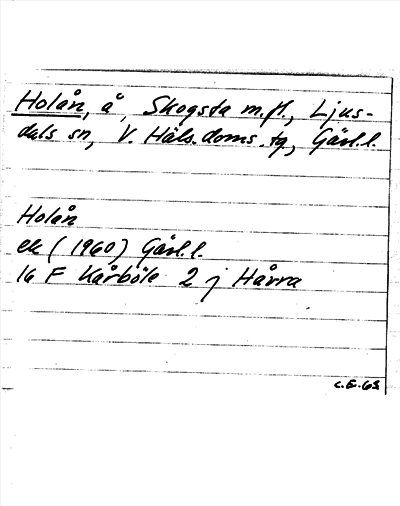 Holån, å, Skogsta m.fl., Ljus-
dals sn, V. Häls. doms. tg, Gävl.l.
Holån
ek (1960) Gävl.l.
16 F Kårböle 2 j Hårra
C.E.63